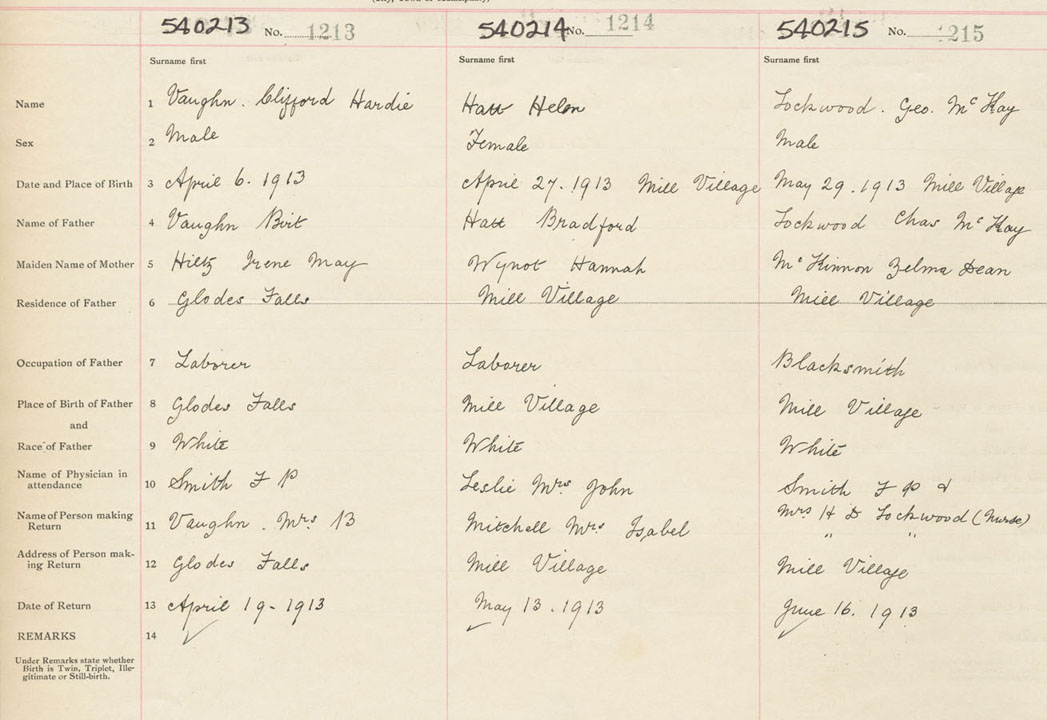 540213 No. 1213 540214 No. 1214 540215 No. 1215
Surname first Surname first Surname first
Name 1 Vaughn. Clifford Hardie Hatt Helen Lockwood. Geo. McKay
Sex 2 Male Female Male
Date and Place of Birth 3 April 6. 1913 April 27. 1913 Mill Village May 29. 1913 Mill Village
Name of Father 4 Vaughn Birt Hatt Bradford Lockwood Chas McKay
Maiden Name of Mother 5 Hiltz Irene May Wynot Hannah McKinnon Zelma Dean
Residence of Father 6 Glodes Falls Mill Village Mill Village
Occupation of Father 7 Laborer Laborer Blacksmith
Place of Birth of Father 8 Glodes Falls Mill Village Mill Village
and
Race of Father 9 White White White
Name of Physician in
attendance 10 Smith F P Leslie Mrs John Smith F P &
Name of Person making
Return 11 Vaughn. Mrs B Mitchell Mrs Isabel Mrs H D Lockwood (Nurse)
" "
Address of Person mak-
ing Return 12 Glodes Falls Mill Village Mill Village
Date of Return 13 April 19-1913 May 13. 1913 June 16. 1913
REMARKS 14
Under Remarks state whether
Birth is Twin, Triplet, Ille-
gitimate or Still-birth.